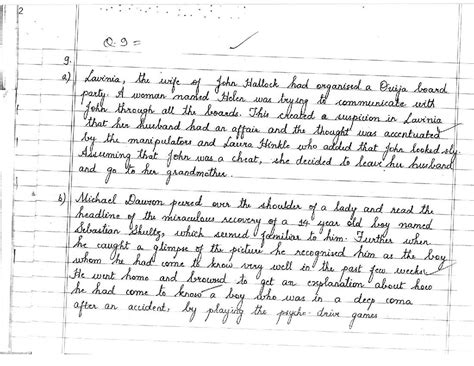 2
Q.9=
9.
a) Lavinia, the wife of John Hallock had organised a Ouija board
party. A woman named Helen was trying to communicate with
John through all the boards. This created a suspicion in Lavinia
that her husband had an affair and the thought was accentuated
by the manipulators and Laura Hinkle who added that John looked sly.
Assuming that John was a cheat, she decided to leave her husband
and go to her grandmother.
b) Michael Dawson peered over the shoulder of a lady and read the
headline of the miraculous recovery of a 14 year old boy named
Sebastian Shultz, which seemed familiar to him. Further when
he caught a glimpse of the picture he recognised him as the boy
whom he had come to know very well in the past few weeks
He went home and browsed to get an explanation about how
he had come to know a boy who was in a deep coma
after an accident, by playing the psycho-drive games